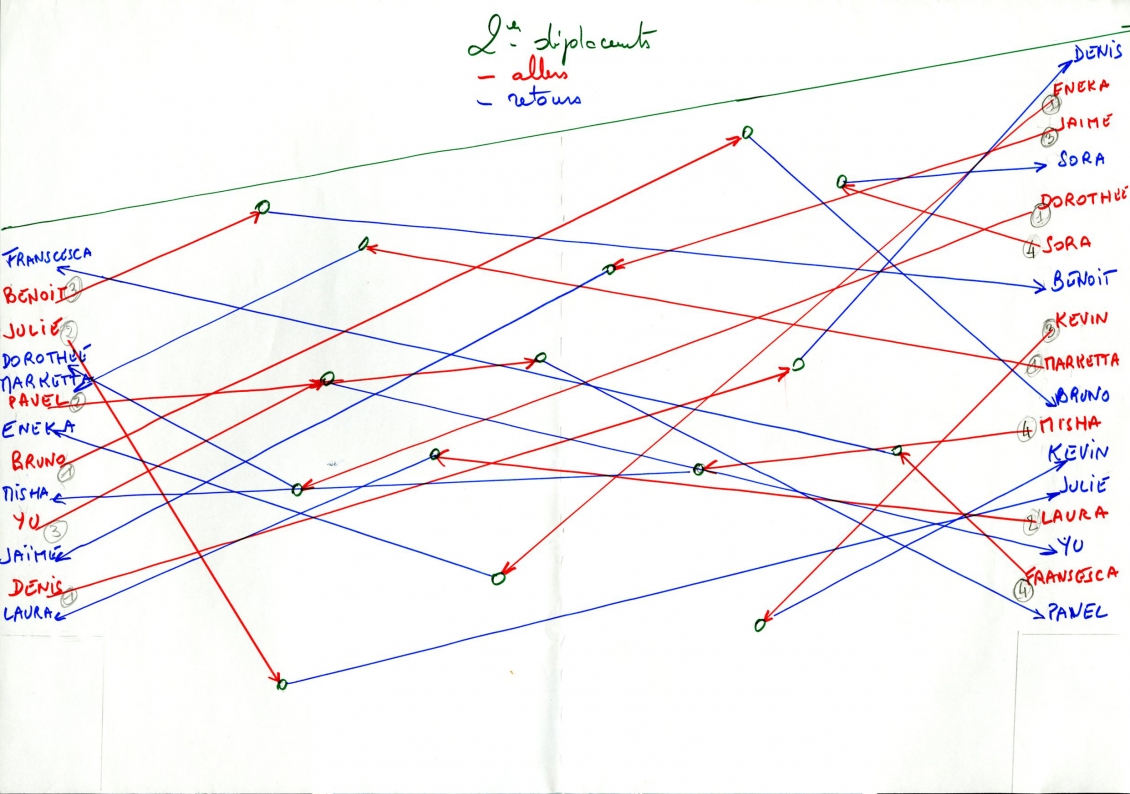 2es déplacements
- allers
- retours
FRANSCESCA
BENOIT 3
JULIE 2
DOROTHÉE
MARKETTA
PAVEL 2
ENEKA
BRUNO 1
MISHA
YU 3
JAÏME
DENIS 1
LAURA
DENIS
ENEKA 1
JAIME 3
SORA
DOROTHÉE 1
SORA 4
BENOIT
KEVIN 3
MARKETTA
BRUNO
MISHA 4
KEVIN
JULIE
LAURA 2
YU
FRANSESCA 4
PANEL